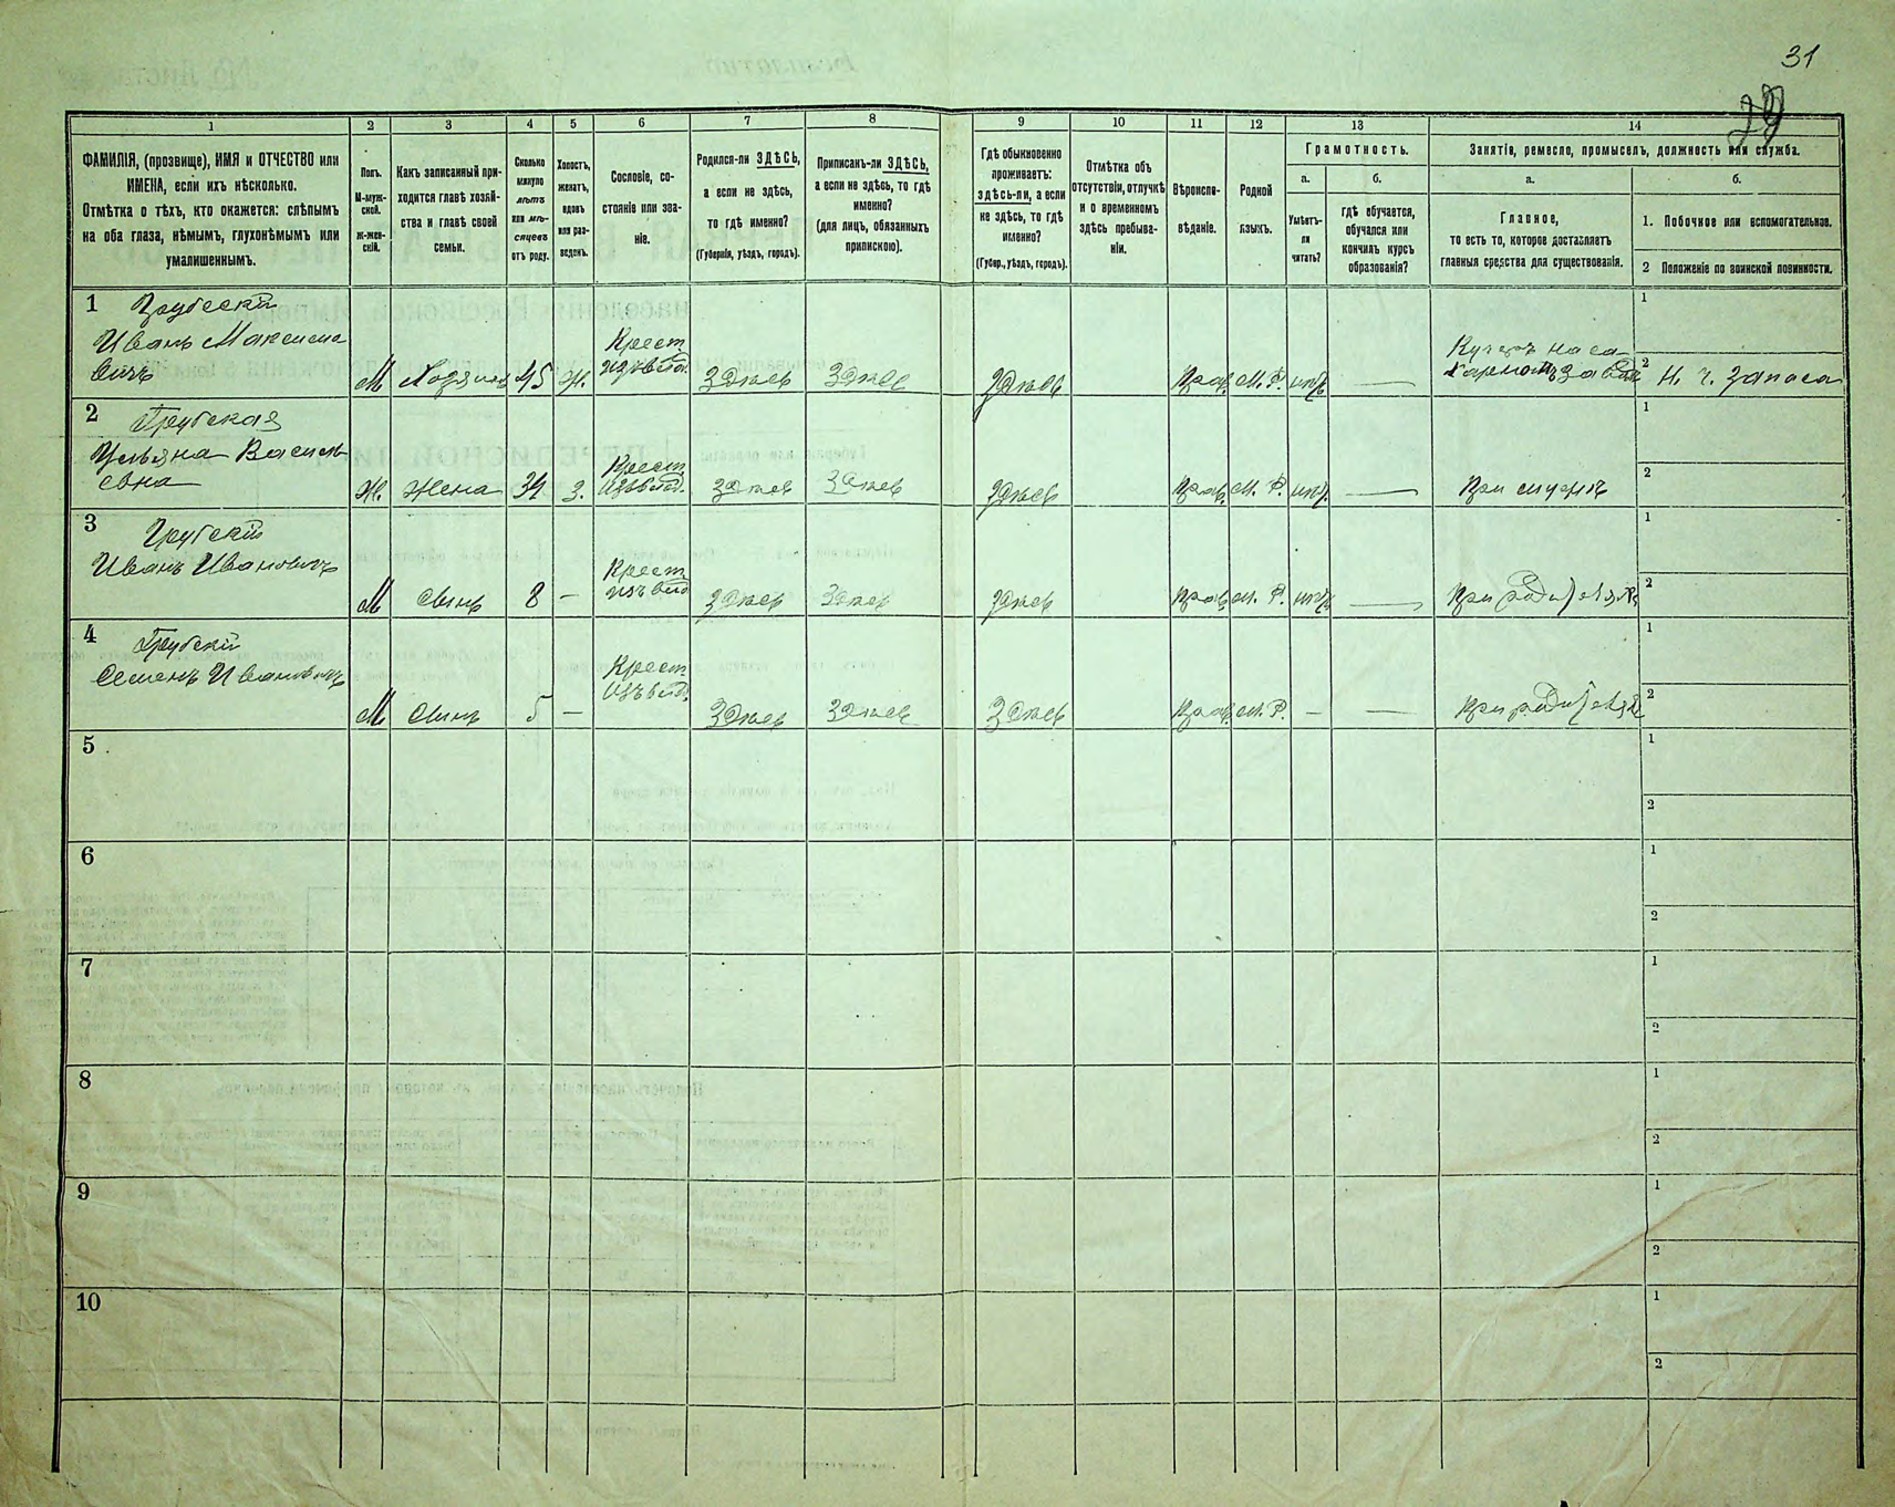 31
29
1
2
3
4
5
6
7
8
9
10
11
12
13
14
ФАМИЛІЯ, (прозвище), ИМЯ и ОТЧЕСТВО или
ИМЕНА, если ихъ нѣсколько.
Отмѣтка о тѣхъ, кто окажется: слѣпымъ
на оба глаза, нѣмымъ, глухонѣмымъ или
умалишеннымъ.
Полъ.
М-муж-
ской.
Ж-жен-
скій.
Какъ записанный при-
ходится главѣ хозяй-
ства и главѣ своей
семьи.
Сколько
минуло
лѣтъ
или мѣ-
сяцевъ
отъ роду.
Холостъ,
женатъ,
вдовъ
или раз-
веденъ.
Сословіе, со-
стояніе или зва-
ніе.
Родился-ли ЗДѢСЬ,
а если не здѣсь,
то гдѣ именно?
(Губернія, уѣздъ, городъ).
Приписанъ-ли ЗДѢСЬ,
а если не здѣсь, то гдѣ
именно?
(для лицъ, обязанныхъ
припискою).
Гдѣ обыкновенно
проживаетъ:
здѣсь-ли, а если
не здѣсь, то гдѣ
именно?
(Губер., уѣздъ, городъ).
Отмѣтка объ
отсутствіи, отлучкѣ
и о временномъ
здѣсь пребыва-
ніи.
Вѣроиспо-
вѣданіе.
Родной
языкъ.
Грамотность.
а.
Умѣетъ-
ли
читать?
б.
гдѣ обучается,
обучался или
кончилъ курсъ
образованія?
Занятіе, ремесло, промыселъ, должность или служба.
а.
Главное,
то есть то, которое доставляетъ
главныя средства для существованія.
б.
1. Побочное или вспомогательное.
2 Положеніе по воинской повинности.
1 Грубский
Иванъ Максимо
вичъ
М
Хозяинъ
45
Ж.
Крест.
изъ влад.
Здѣсь
Здѣсь
Здѣсь
Прав.
М. Р.
нѣтъ
—
Кучеръ на са-
харномъ заводѣ
1
2 Н. ч. запаса
2 Грубская
Ульяна Василь
евна
Ж.
Жена
34
З.
Крест.
изъ влад.
Здѣсь
Здѣсь
Здѣсь
Прав.
М. Р.
нѣт.
—
При мужѣ
1
2
3 Грубскій
Иванъ Ивановичъ
М
Сынъ
8
—
Крест.
изъ влад
Здѣсь
Здѣсь
Здѣсь
Прав.
М. Р.
нѣтъ
—
При родителяхъ
1
2
4 Грубскій
Семенъ Ивановичъ
М
Сынъ
5
—
Крест.
изъ влад.
Здѣсь
Здѣсь
Здѣсь
Прав.
М. Р.
—
—
При родителяхъ
1
2
5
1
2
6
1
2
7
1
2
8
1
2
9
1
2
10
1
2